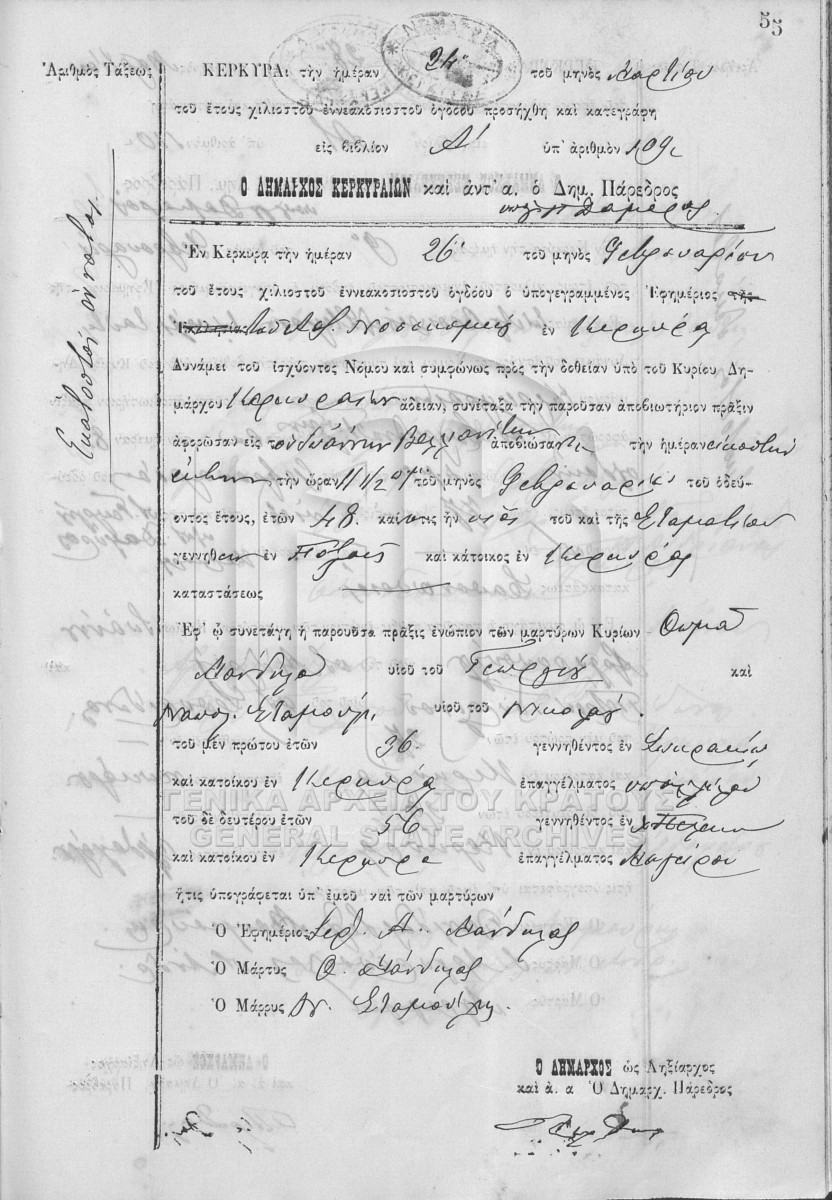 55
Ἀριθμὸς Τάξεως
ΚΕΡΚΥΡΑι τὴν ἡμέραν 24 τοῦ μηνὸς Μαρτίου
τοῦ ἔτους χιλιοστοῦ ἐννεακοσιοστοῦ ὀγδόου προσήχθη καὶ κατεγράφη
εἰς βιβλίον Α' ὑπ' ἀριθμὸν 109
Ὁ ΔΗΜΑΡΧΟΣ ΚΕΡΚΥΡΑΙΩΝ καὶ ἀντ' α. ὁ Δημ. Πάρεδρος
Ἑκατοστὸς ἔννατος
Ἐν Κερκύρα τὴν ἡμέραν 26 τοῦ μηνὸς Φεβρουαρίου
τοῦ ἔτους χιλιοστοῦ ἐννεακοσιοστοῦ ὀγδόου ὁ ὑπογεγραμμένος Ἐφημέριος τῆς
Ἐκκλησίας Νοσοκομείου ἐν Κερκύρᾳ
Δυνάμει τοῦ ἰσχύοντος Νόμου καὶ συμφώνως πρὸς τὴν δοθεῖσαν ὑπὸ τοῦ Κυρίου Δη-
μάρχου Κερκυραίων ἄδειαν, συνέταξα τὴν παροῦσαν ἀποβιωτήριον πρᾶξιν
ἀφορῶσαν εἰς τὸν Ἰωάννην ἀποβιώσαντα τὴν ἡμέραν εἰκοστὴν
ἕκτην, τὴν ὥραν 11 1/2 τοῦ μηνὸς Φεβρουαρίου τοῦ ὁδεύ-
οντος ἔτους, ἐτῶν 48 καὶ ὅστις ἦν υἱὸς τοῦ καὶ τῆς Σταματίου
γεννηθεὶς ἐν Παξοῖς καὶ κάτοικος ἐν Κερκύρᾳ
καταστάσεως
Ἐφ' ᾧ συνετάγη ἡ παροῦσα πρᾶξις ἐνώπιον τῶν μαρτύρων Κυρίων Θωμᾶ
Μάνδυλα υἱοῦ τοῦ Γεωργίου καὶ
Σταμούλη υἱοῦ τοῦ Νικολάου.
τοῦ μὲν πρώτου ἐτῶν 36 γεννηθέντος ἐν
καὶ κατοίκου ἐν Κερκύρᾳ ἐπαγγέλματος
τοῦ δὲ δευτέρου ἐτῶν 56 γεννηθέντος ἐν
καὶ κατοίκου ἐν Κερκύρᾳ ἐπαγγέλματος Μαγείρου
ἥτις ὑπογράφεται ὑπ' ἐμοῦ καὶ τῶν μαρτύρων
Ὁ Ἐφημέριος Α. Μάνδυλας
Ὁ Μάρτυς Θ. Μάνδυλας
Ὁ Μάρρυς Σταμούλης.
ΓΕΝΙΚΑ ΑΡΧΕΙΑ ΤΟΥ ΚΡΑΤΟΥΣ
GENERAL STATE ARCHIVES
Ὁ ΔΗΜΑΡΧΟΣ ὡς Ληξίαρχος
καὶ ἀ. α Ὁ Δημαρχ. Πάρεδρος